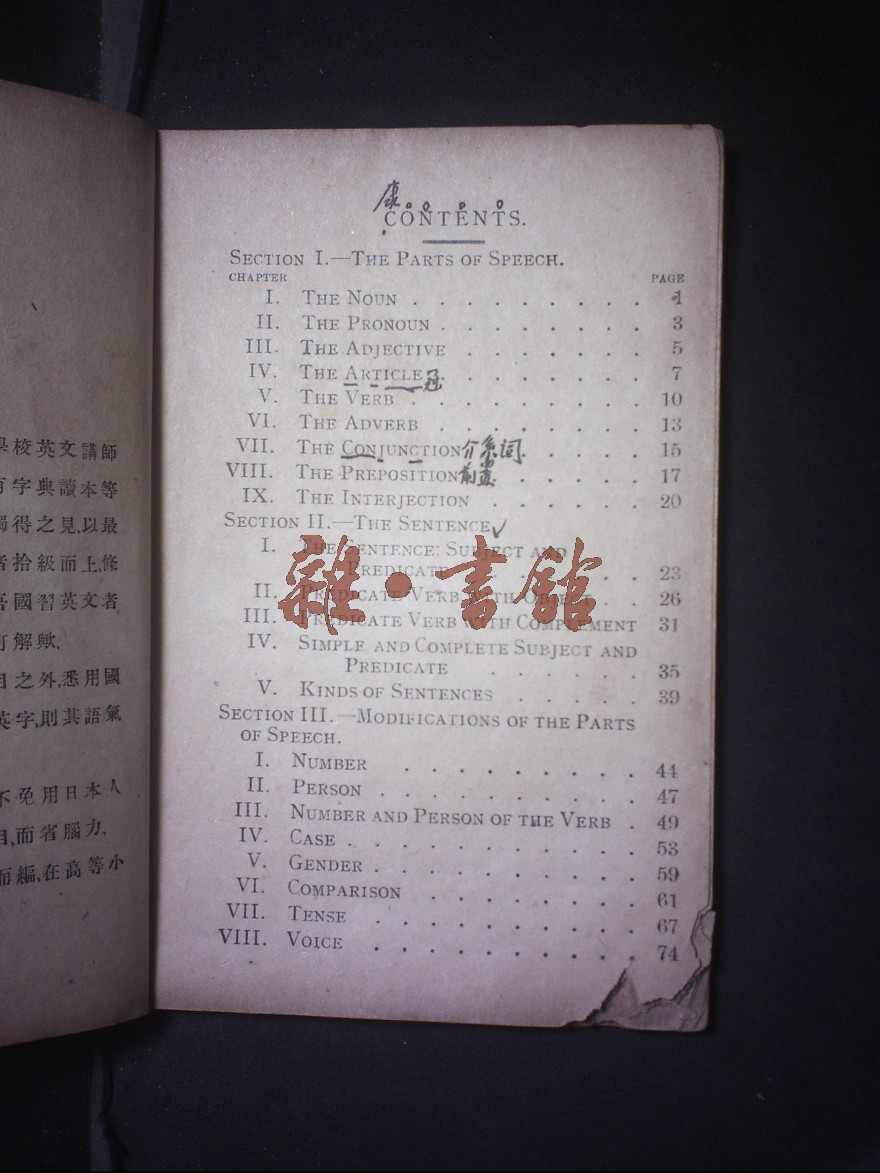 學校英文講師
字典讀本等
得之見,以最
拾級而上,條
國習英文者
解歟、
目之外,悉用國
英字,則其語氣
不免用日本人
目,而省腦力、
而編,在高等小
康
CONTENTS.
SECTION I.—THE PARTS OF SPEECH.
CHAPTER PAGE
I. THE NOUN . . . . . . . . . 1
II. THE PRONOUN . . . . . . . . 3
III. THE ADJECTIVE . . . . . . . 5
IV. THE ARTICLE 冠 . . . . . . . 7
V. THE VERB . . . . . . . . . 10
VI. THE ADVERB . . . . . . . . 13
VII. THE CONJUNCTION 介系词 . . . . 15
VIII. THE PREPOSITION 前置 . . . . . 17
IX. THE INTERJECTION . . . . . . 20
SECTION II.—THE SENTENCE ✓
I. THE SENTENCE: SUBJECT AND
PREDICATE . . . . . . 23
II. PREDICATE VERB WITH OBJECT . . 26
III. PREDICATE VERB WITH COMPLEMENT 31
IV. SIMPLE AND COMPLETE SUBJECT AND
PREDICATE . . . . . . 35
V. KINDS OF SENTENCES . . . . . 39
SECTION III.—MODIFICATIONS OF THE PARTS
OF SPEECH.
I. NUMBER . . . . . . . . . 44
II. PERSON . . . . . . . . . . 47
III. NUMBER AND PERSON OF THE VERB . 49
IV. CASE . . . . . . . . . . . 53
V. GENDER . . . . . . . . . . 59
VI. COMPARISON . . . . . . . . 61
VII. TENSE . . . . . . . . . . 67
VIII. VOICE . . . . . . . . . . 74
雜·書館